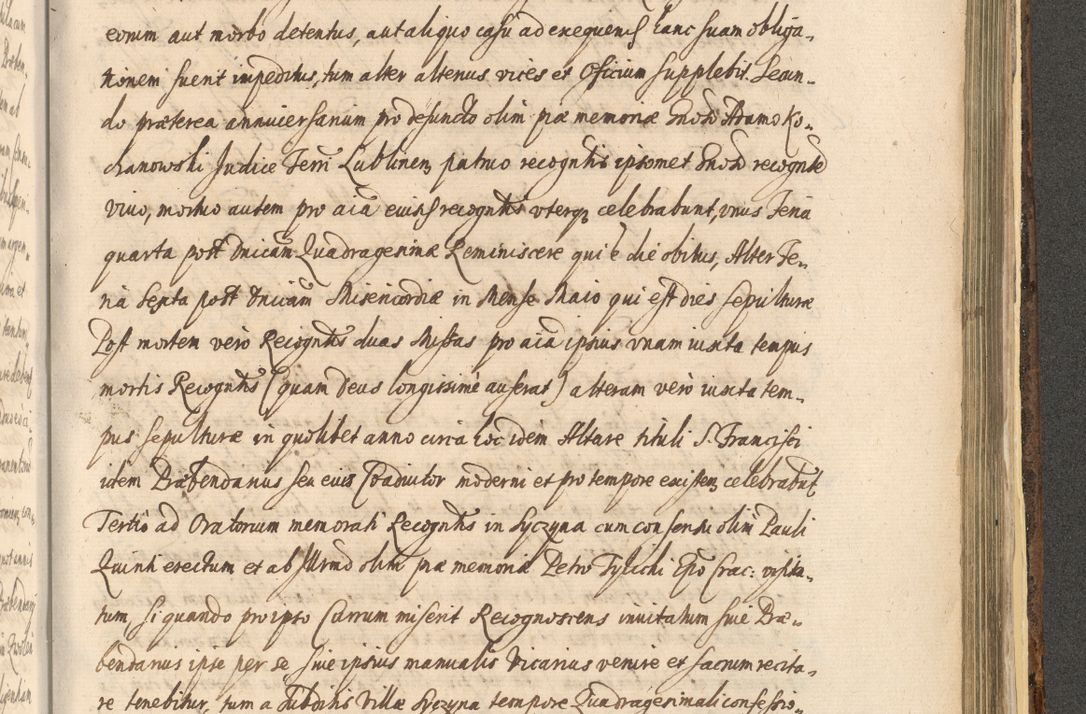 eorum aut morbo detentus, aut aliquo casu ad exequens hanc suam obliga„
tionem fuerit impeditus, tum alter alterius vices et Officium supplebit. Secun„
do præterea anniuersarium pro defuncto olim piæ memoriæ Gnoso Adamo Ko„
chanowski Judice Terræ Lublinen, patruo recogntis ipsomet Gnoso recognte
viuo, mortuo autem pro aia eius recogntis vterq; celebrabunt, vnus feria
quarta post Dnicam Quadragesimæ Reminiscere qui e die obitus, Alter Fe„
ria Sexta post Dnicam Misericordiæ in Mense Maio qui est dies sepulturæ
Post mortem vero Recogntis duas Missas pro aia ipsius vnam iuxta tempus
mortis Recogntis (quam Deus longissimè auferat) alteram verò iuxta tem„
pus sepulturæ in quolibet anno circa hoc idem Altare tituli S. Francisci
idem Præbendarius seu eius Coadiutor moderni et pro tempore existen, celebrabūt
Tertiò ad Oratorium memorati Recogntis in Syczyna cum consensu olim Pauli
Quinti erectum et ab Illrmo olim piæ memoriæ Petro Tylicki Epo Crac: visita„
tum, si quando pro ipso Currum miserit Recognoscens inuitatum siue Præ„
bendarius ipse per se siue ipsius manualis Vicarius venire et sacrum recita„
re tenebitur, tum a Subditis Villæ Syczyna tempore Quadragesimali confessio„